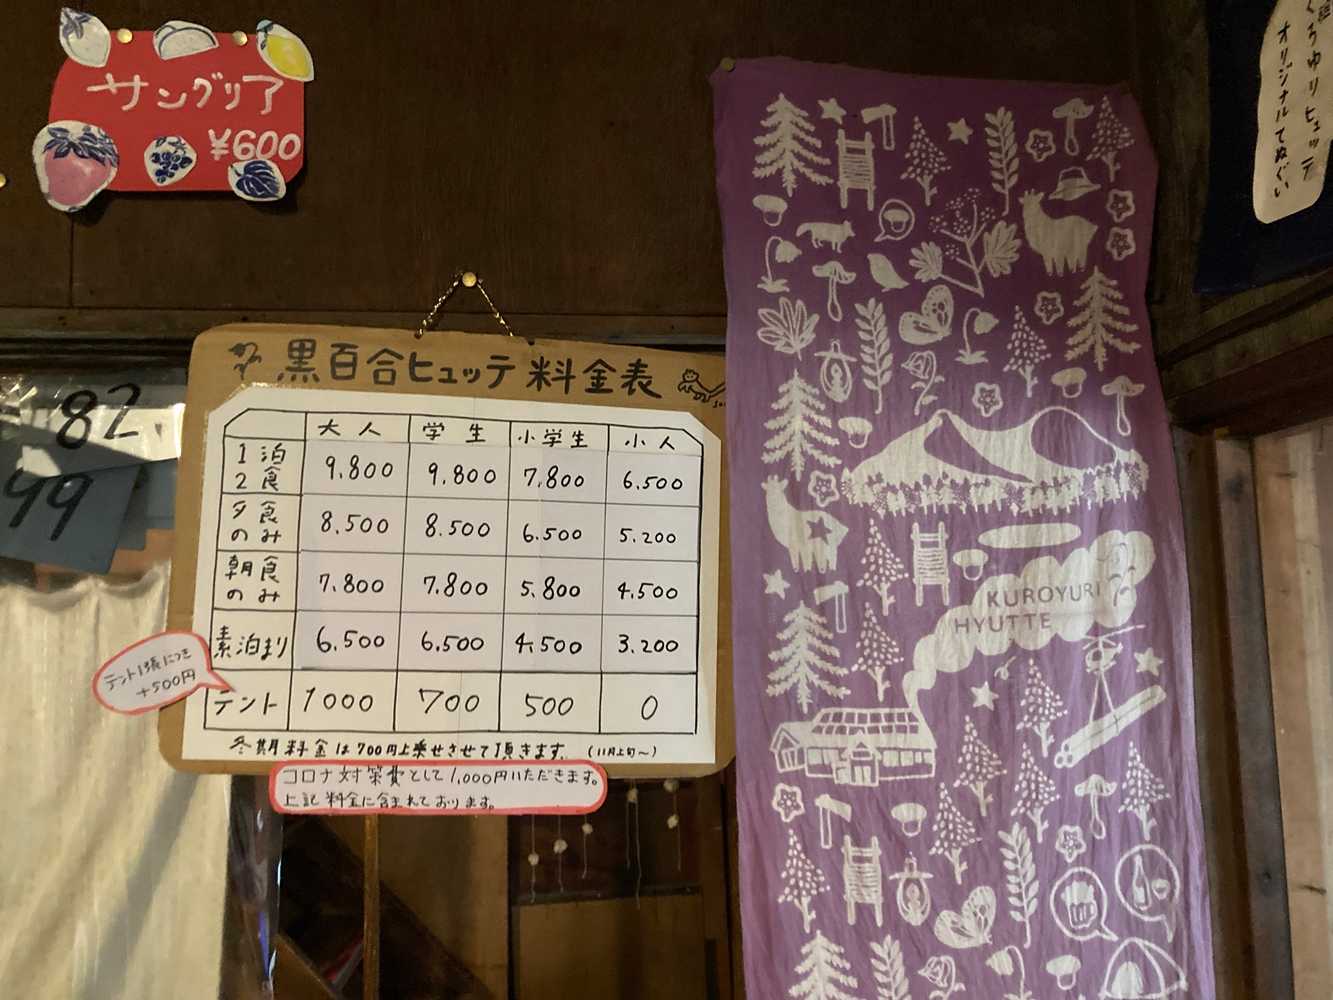 サングリア
¥600
82.
99
黒百合ヒュッテ 料金表
大人 学生 小学生 小人
1泊2食 9.800 9.800 7.800 6.500
夕食のみ 8.500 8.500 6.500 5.200
朝食のみ 7.800 7.800 5.800 4.500
素泊まり 6.500 6.500 4.500 3.200
テント 1000 700 500 0
テント1張につき
+500円
冬期料金は700円上乗せさせて頂きます。(11月上旬~)
コロナ対策費として1,000円いただきます。
上記料金に含まれております。
KUROYURI
HYUTTE
くろゆりヒュッテ
オリジナルてぬぐい